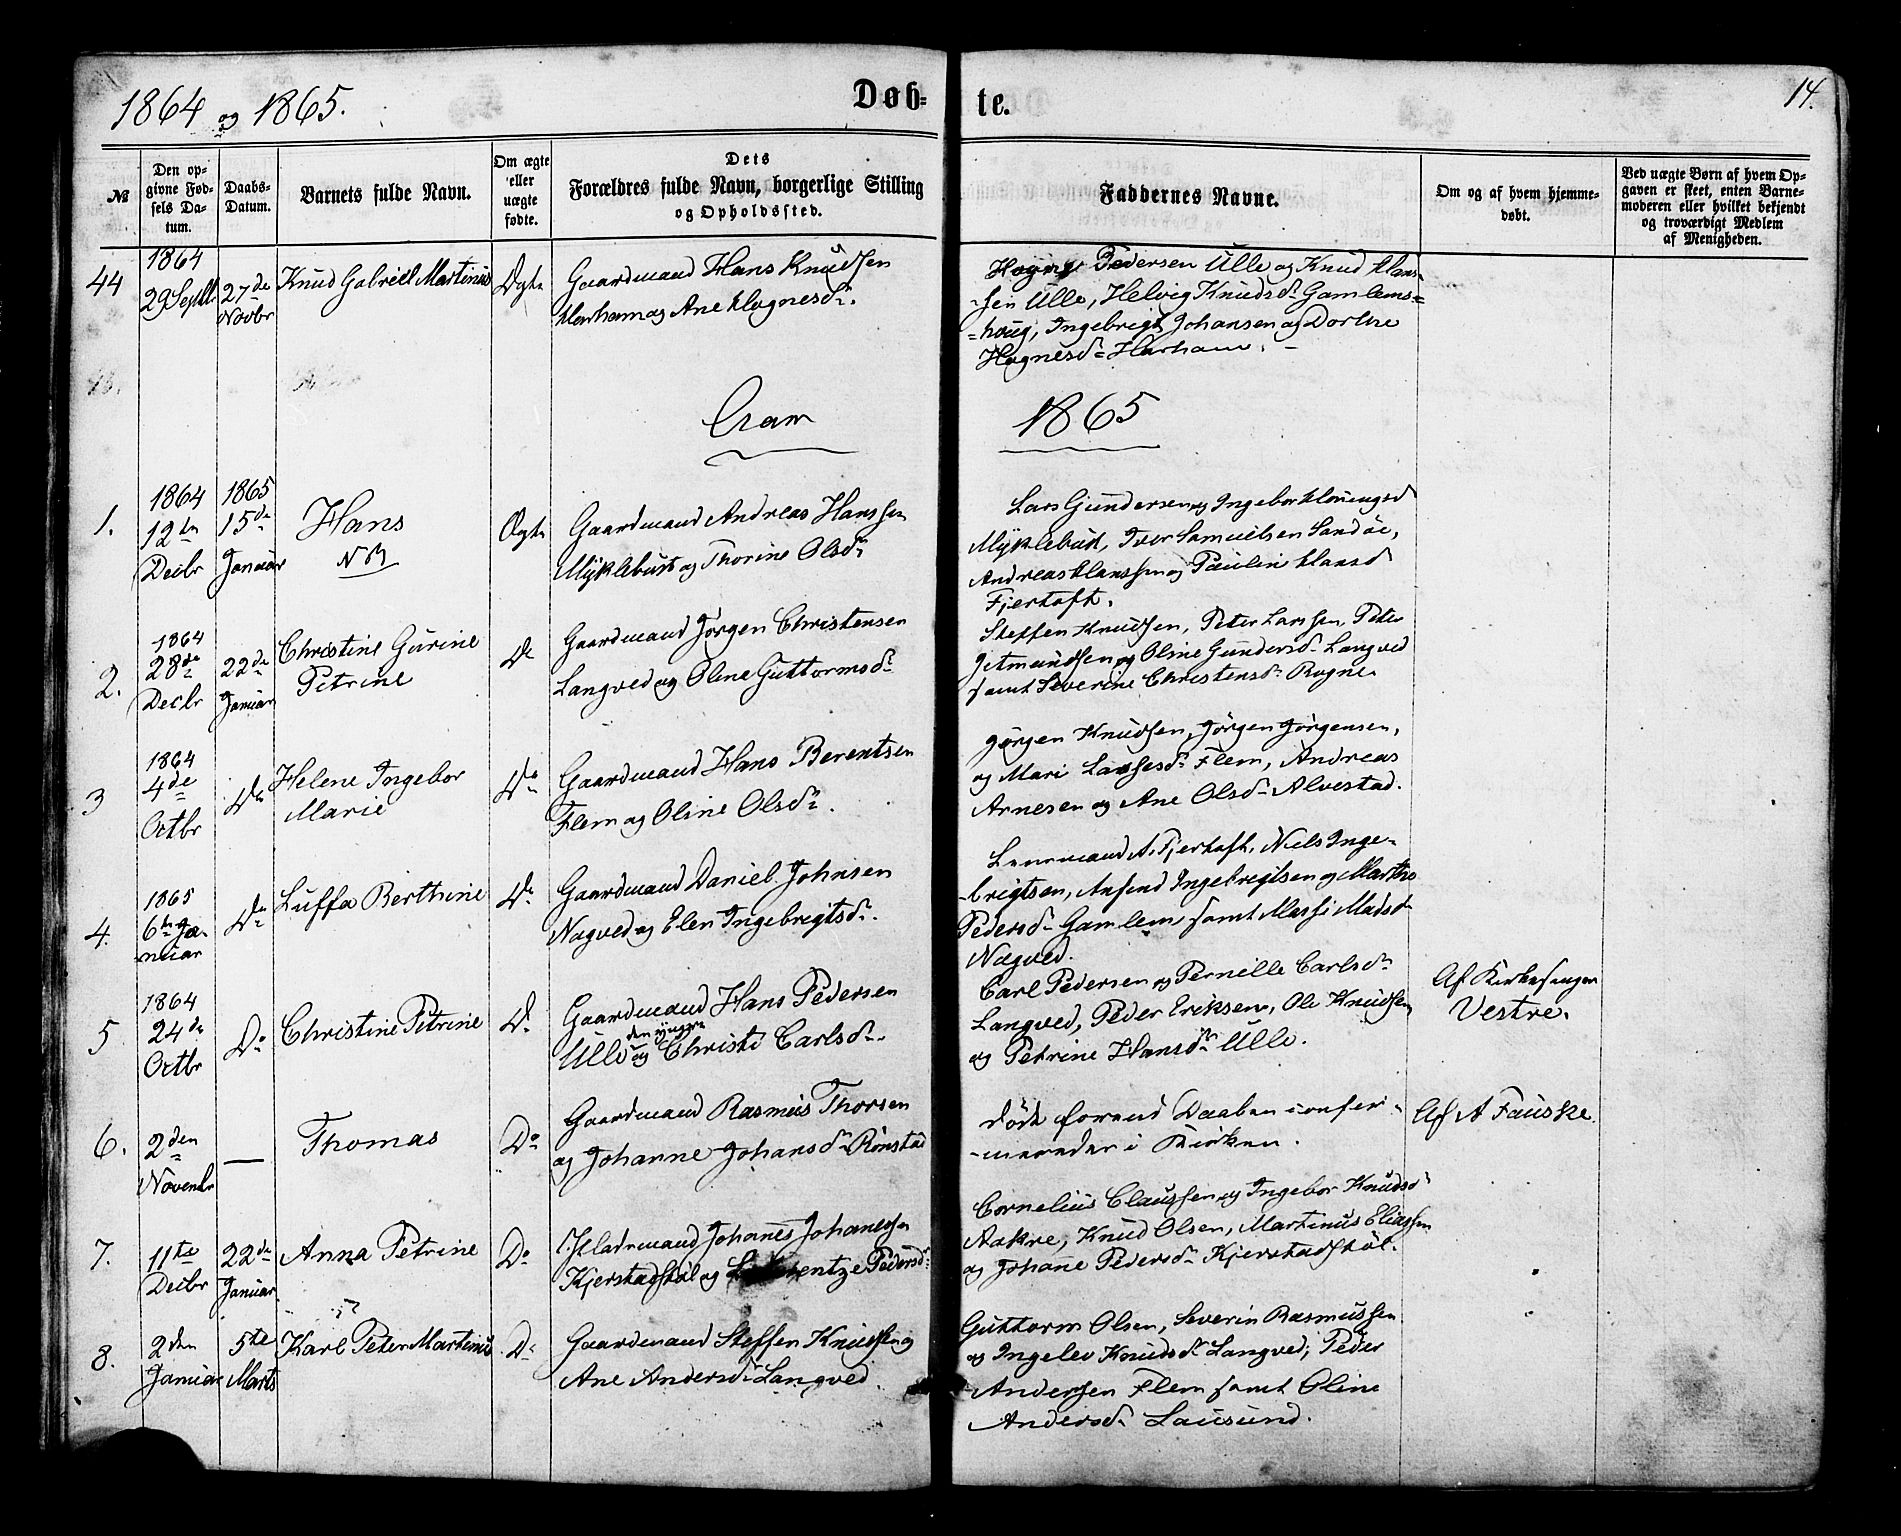 1864 og 1865.
Døb-
te.
14.
№
Den op-
givne Fød-
sels Da-
tum.
Daabs-
Datum.
Barnets fulde Navn.
Om ægte
eller
uægte
fødte.
Dets
Forældres fulde Navn, borgerlige Stilling
og Opholdssted.
Faddernes Navne.
Om og af hvem hjemme-
døbt.
Ved uægte Børn af hvem Op-
gaven er skeet, enten Barne-
moderen eller hvilket bekjendt
og troværdigt Medlem
af Menigheden.
44
1864
29 Septbr
27de
Novbr
Knud Gabriell Martinus
Ægte
Gaardmand Hans Knudsen
Harham og Ane Hognesdr.
Pedersen Ulle og Knud Hans-
-sen Ulle, Helvig Knudsdr Gamlems-
=houg, Ingebrigt Johansen og Dorthe
Hognesdr Harham. -
Aar
1865
1.
1864
12te
Decbr
1865
15de
Januar
Hans
NB
Ægte
Gaardmand Andreas Hanssen
Myklebust og Thorine Olsdr
Lars Gundersen og Ingebor
Myklebust, Iver Samuelsen Sandøe,
Andreas Hanssen og Pauline Hansd
Fjertoft.
2.
1864
28de
Decbr
22de
Januar
Christine Gurine
Petrine
Do
Gaardmand Jørgen Christensen
Langved og Oline Guttormsdr
Steffen Knudsen, Peter Larssen, Peter
og Oline Gundersdr Langved
samt Severine Christensdr Rogne
3
1864
4de
Octbr
Do
Helene Ingebor
Marie
Do
Gaardmand Hans Berentsen
Flem og Oline Olsdr.
Jørgen Knudsen, Jørgen Jørgensen,
og Mari Lassesdr Flem, Andreas
Arnesen og Ane Olsdr Alvestad.
4.
1865
6te Ja-
nuar
Do
Luffa Berthine
Do
Gaardmand Daniel Johnsen
Nogved og Elen Ingebrigtsdr.
Lensmand A. Fjertoft, Niels Inge-
-brigtsen, Ansend Ingebrigtsen og Marthe
Pedersdr Gamlem samt Massi Madsdr
Nogved.
5
1864
24de
Octbr
Do
Christine Petrine
Do
Gaardmand Hans Pedersen
den yngre
Ulle og Christi Carlsdr.
Carl Pedersen og Pernille Carlsdr
Langved, Peder Eriksen, Ole Knudsen
og Petrine Hansdr Ulle.
Af Kirkesanger
Vestre.
6.
2den
Novembr
—
Thomas
Do
Gaardmand Rasmus Thorsen
og Johanne Johansdr Rønstad
død forend Daaben confir-
-meredes i Kirken.
Af A Fauske
7.
11te
Decbr
22de
Januar
Anna Petrine
Do
Johannes Johansen
Kjerstadstøl og Pedersdr
Cornelius Claussen og Ingebor Knudsdr
Aakre, Knud Olsen, Martinus Eliassen
og Johane Pedersdr Kjerstadstøl.
8.
2den
Januar
5te
Marts
Karl Peter Martinus
Do
Gaardmand Steffen Knudsen og
Ane Andersdr Langved.
Guttorm Olsen, Severin Rasmussen
og Ingelev Knudsdr Langved, Peder
Andersen Flem samt Oline
Andersdr Lausund.